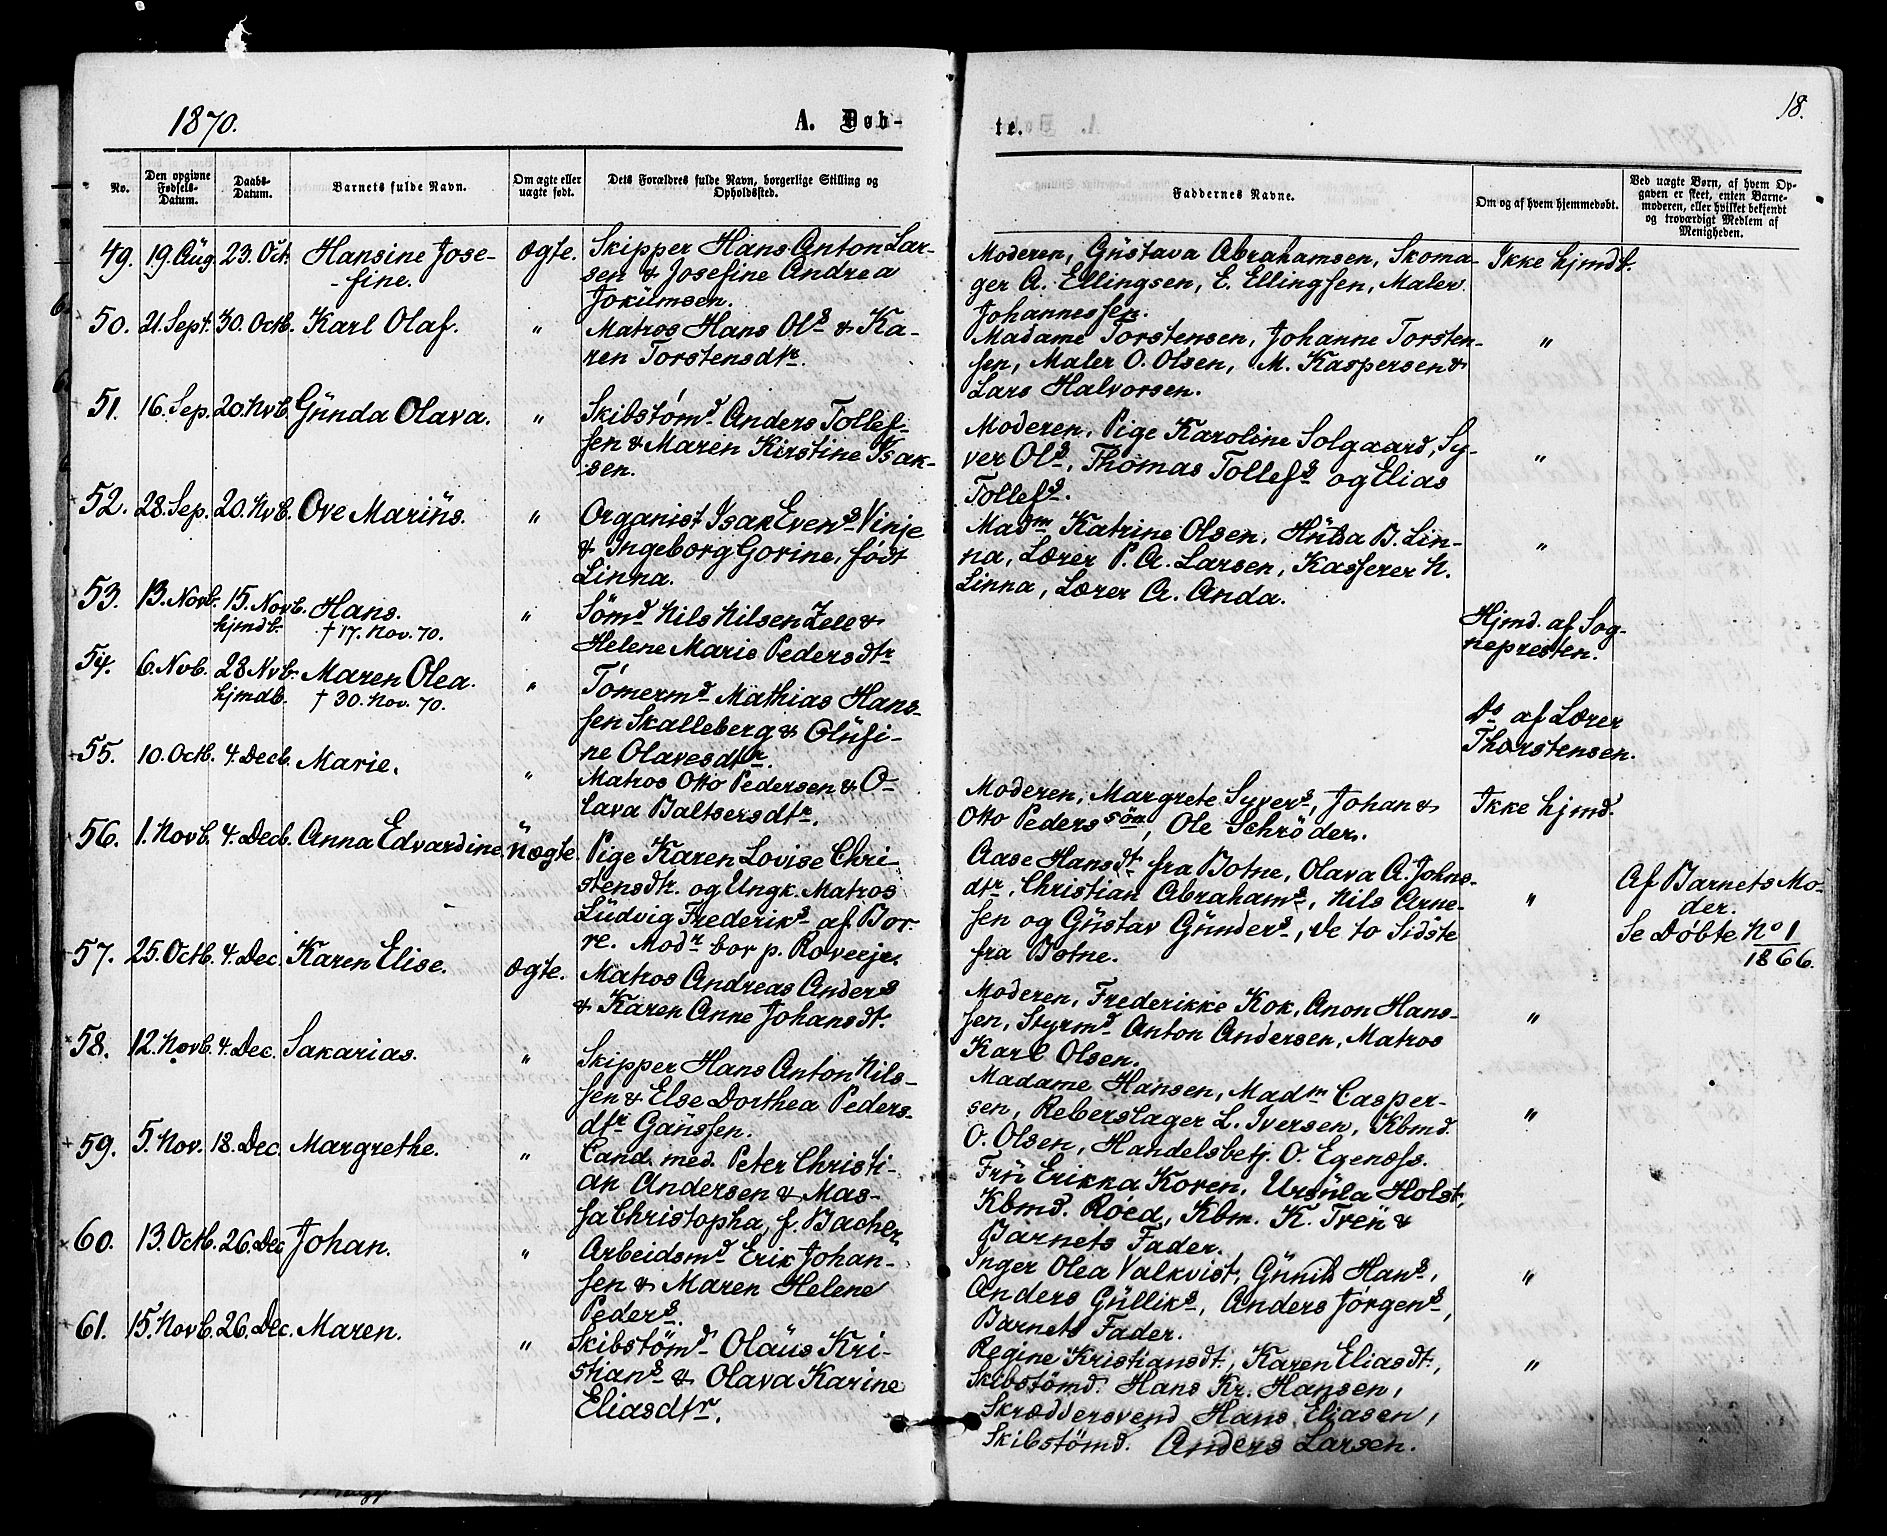 1870.
A. Døb-
te.
18.
No.
Den opgivne Fødsels-Datum.
Daabs-Datum.
Barnets fulde Navn.
Om ægte eller uægte født.
Dets Forældres fulde Navn, borgerlige Stilling og Opholdssted.
Faddernes Navne.
Om og af hvem hjemmedøbt.
Ved uægte Børn, af hvem Op-
gaven er skeet, enten Barne-
moderen, eller hvilket bekjendt
og troværdigt Medlem af
Menigheden.
49. 19. Aug. 23. Oct. Hansine Jose-
-fine.
ægte.
Skipper Hans Anton Lar-
sen & Josefine Andrea
Jokumsen.
Moderen, Gustava Abrahamsen, Skoma-
ger A. Ellingsen, E. Ellingsen, Maler
Johannessen.
Ikke hjmdb.
50. 21. Sept. 30. Octb. Karl Olaf.
"
Matros Hans Ols & Ka-
ren Torstensdtr.
Madame Torstensen, Johanne Torsten-
sen, Maler O. Olsen, M. Kaspersen &
Lars Halvorsen.
"
51. 16. Sep. 20. Nvb. Gunda Olava.
"
Skibstømd Anders Tollef-
sen & Maren Kirstine Isak-
sen.
Moderen, Pige Karoline Solgaard, Sy-
ver Ols, Thomas Tollefs og Elias
Tollefs.
"
52. 28. Sep. 20. Nvb. Ove Marius.
"
Organist Isak Evens Vinje
& Ingeborg Gorine, født
Linna.
Madm Katrine Olsen, Hulda B. Lin-
na, Lærer P. A. Larsen, Kasserer N.
Linna, Lærer A. Anda.
"
53. 13. Novb. 15. Novb. Hans.
hjmdb. † 17. Nov. 70.
"
Sømd Nils Nilsen Zele &
Helene Marie Pedersdtr
Hjmd. af Sog-
nepresten.
54. 6. Nvb. 28 Nvb. Maren Olea.
hjmdb. † 30. Nov. 70.
"
Tømermd Mathias Hans-
sen Skalleberg & Olufi-
ne Olavesdtr.
Do af Lærer
Thorstensen.
55. 10. Octb. 4. Decb. Marie.
"
Matros Otto Pedersen & O-
lava Baltsersdtr.
Moderen, Margrete Syvers, Johan &
Otto Pederssøn, Ole Schrøder.
Ikke hjmd.
56. 1. Novb. 4. Decb. Anna Edvardine.
uægte.
Pige Karen Lovise Chri-
stensdtr. og Ungk. Matros
Ludvig Frederiks af Bor-
re. Modr bor p. Roveeje.
Aase Hansdt fra Botne, Olava A. Johns-
dtr, Christian Abrahams, Nils Arne-
sen og Gustav Gunders, de to Sidste
fra Botne.
"
Af Barnets Mo-
der.
Se Døbte No 1
1866.
57. 25. Octb. 4. Dec. Karen Elise.
ægte.
Matros Andreas Anders
& Karen Anne Johansdt.
Moderen, Frederikke Kok, Anon Hans-
sen, Styrmd Anton Andersen, Matros
Karl Olsen.
"
58. 12. Novb. 4. Dec. Sakarias.
"
Skipper Hans Anton Nils-
sen & Else Dorthea Peders-
dtr Gaussen.
Madame Hansen, Madm Casper-
sen, Reberslager L. Iversen, Kbmd.
O. Olsen, Handelsbetj. O. Egenæss.
"
59. 5. Nov. 18. Dec. Margrethe.
"
Cand. med. Peter Christi-
an Andersen & Mas-
sa Christopha, f. Bacher.
Fru Erikka Koren, Ursula Holst,
Kbmd. Røed, Kbm. K. Treu &
Barnets Fader.
60. 13. Octb. 26. Dec Johan.
"
Arbeidsmd Erik Johan-
sen & Maren Helene
Peders.
Inger Olea Valkvist, Gunild Hans,
Anders Gulliks, Anders Jørgens,
Barnets Fader.
"
61. 15. Novb. 26. Dec. Maren.
"
Skibstømd Olaus Kri-
stians & Olava Karine
Eliasdtr.
Regine Kristiansdt, Karen Eliasdt,
Skibstømd. Hans Kr. Hansen,
Skræddersvend Hans Eliasen,
Skibstømd. Anders Larsen.
"